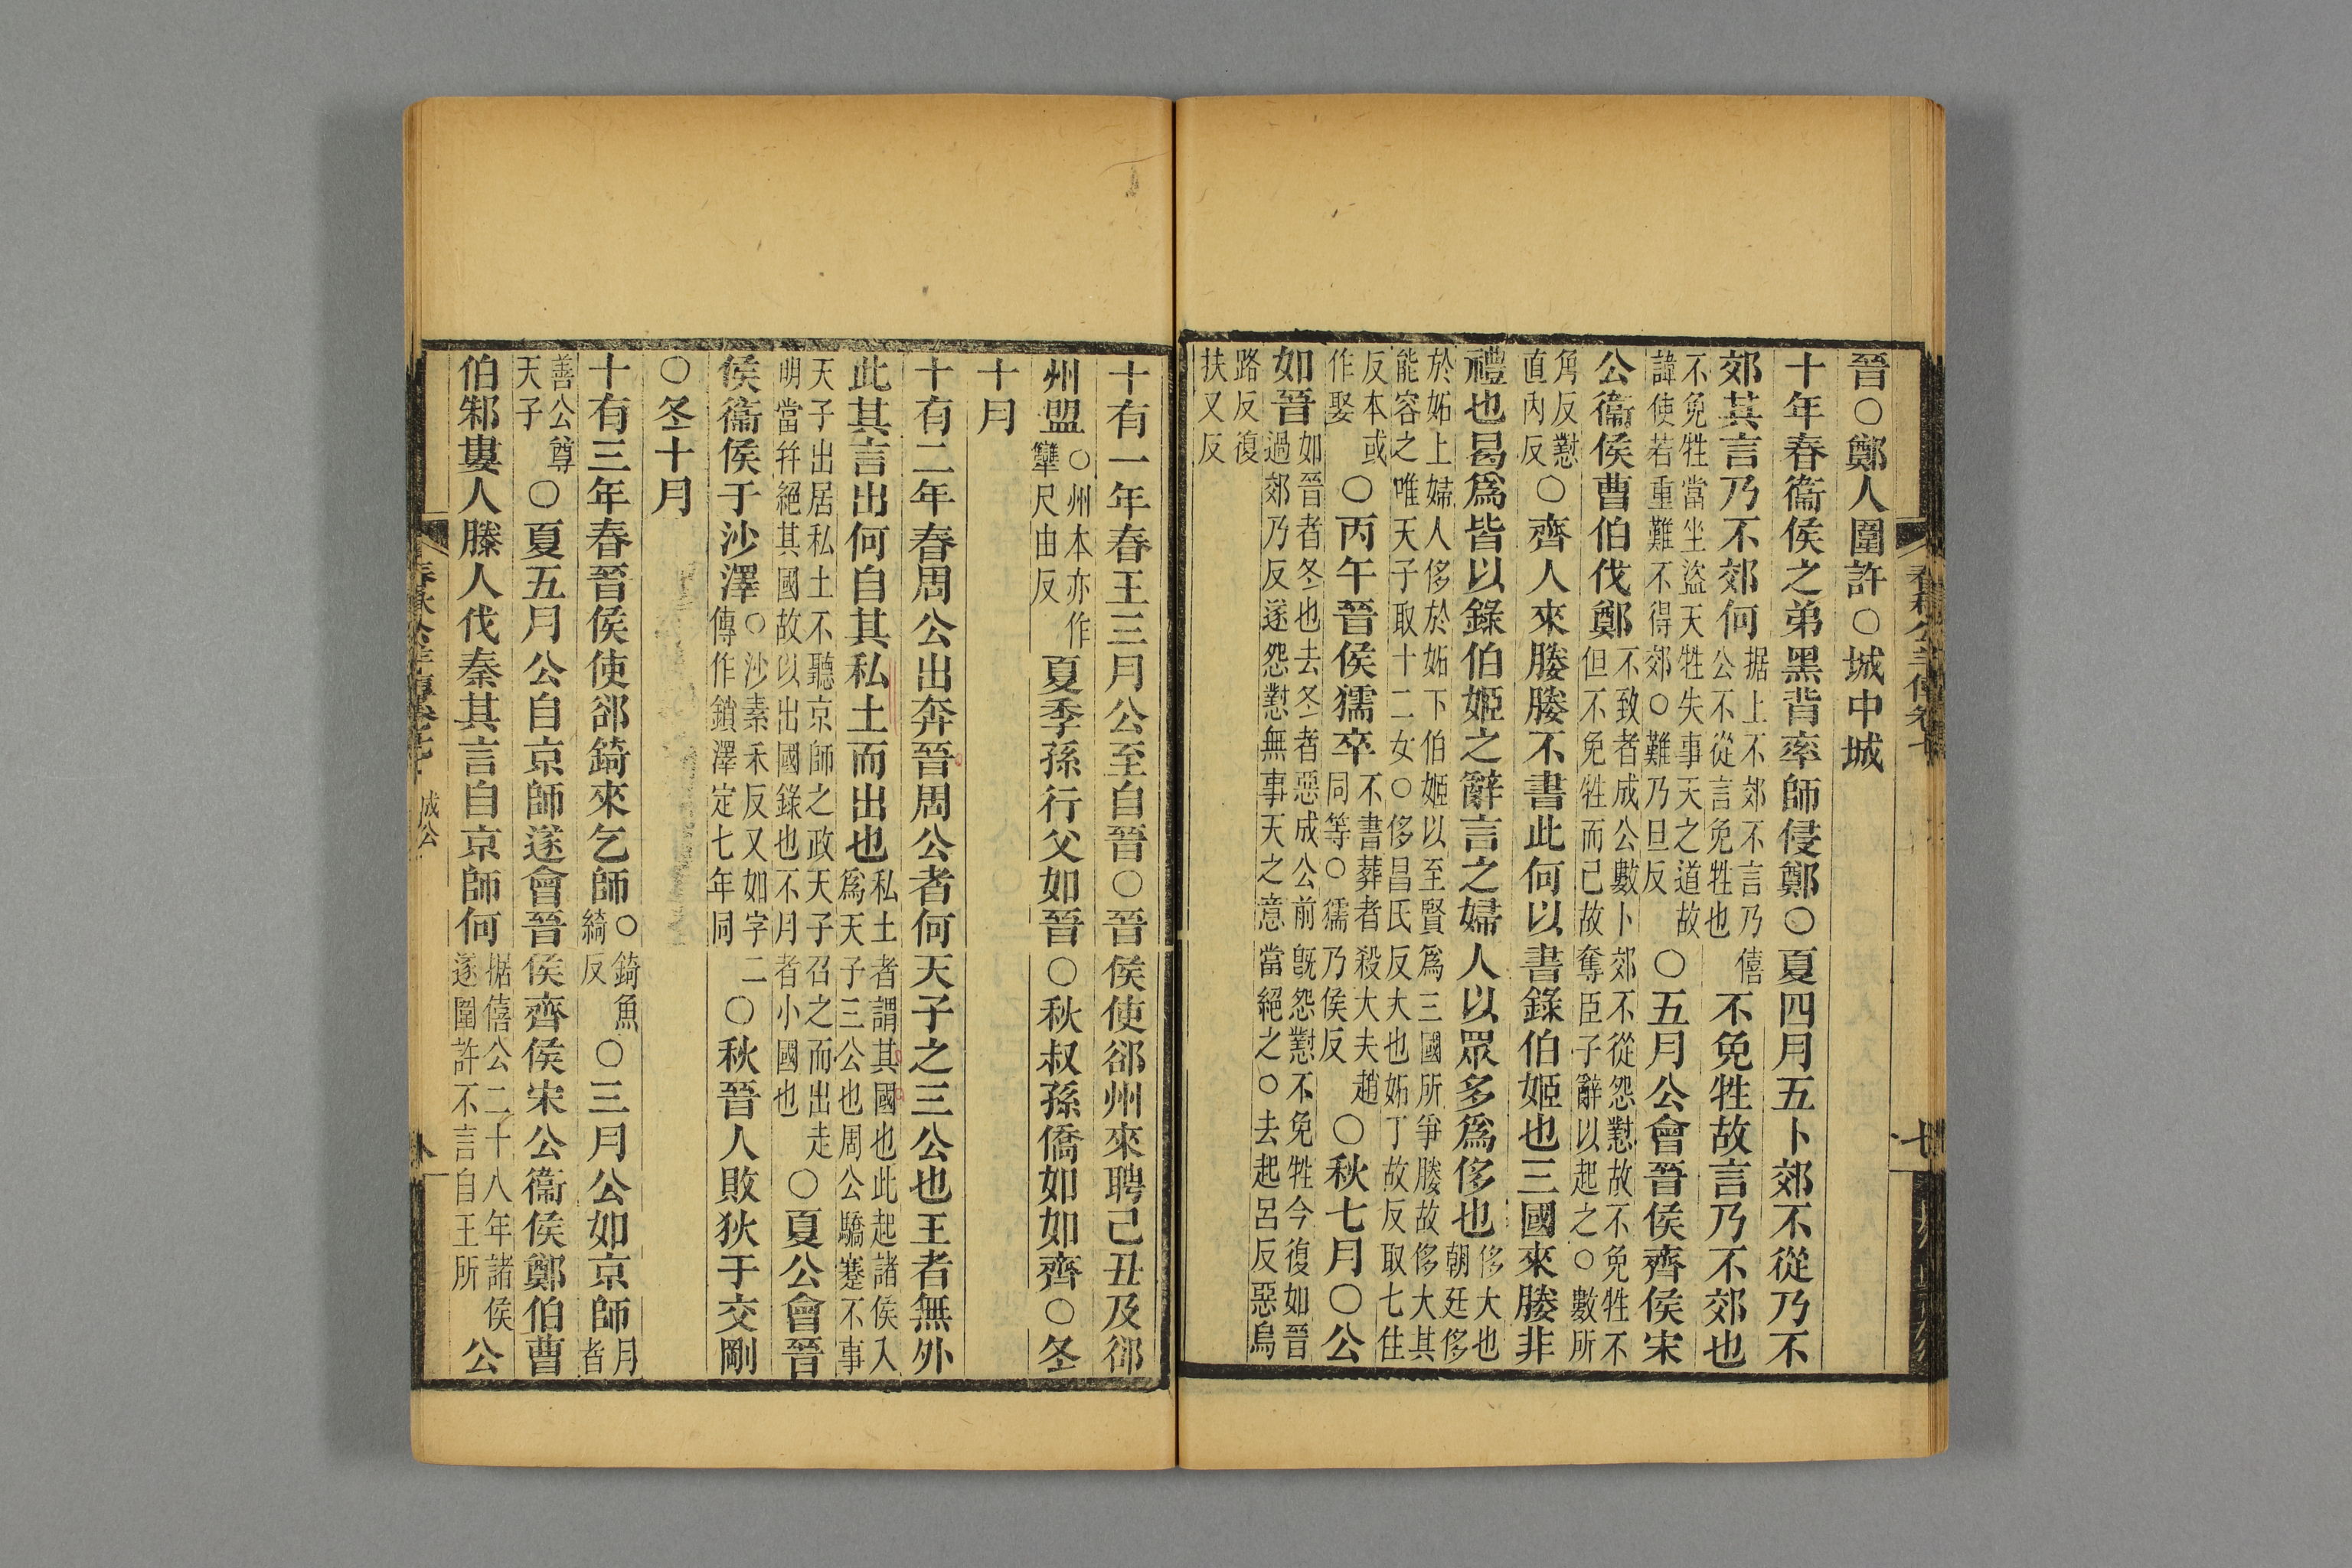 晉○鄭人圍許○城中城
十年春衞侯之弟黑背率師侵鄭○夏四月五卜郊不從乃不
郊其言乃不郊何据上不郊不言乃僖公不從言免牲也不免牲故言乃不郊也
不免牲當坐盜天牲失事天之道故諱使若重難不得郊○難乃旦反○五月公會晉侯齊侯宋
公衞侯曹伯伐鄭不致者成公數卜郊不從怨懟故不免牲不但不免牲而已故奪臣子辭以起之○數所
角反懟直內反○齊人來媵媵不書此何以書錄伯姬也三國來媵非
禮也曷爲皆以錄伯姬之辭言之婦人以眾多爲侈也侈大也朝廷侈
於妬上婦人侈於妬下伯姬以至賢爲三國所爭媵故侈大其能容之唯天子取十二女○侈昌氏反大也妬丁故反取七住
反本或作娶○丙午晉侯獳卒不書葬者殺大夫趙同等○獳乃侯反○秋七月○公
如晉如晉者冬也去冬者惡成公前旣怨懟不免牲今復如晉過郊乃反遂怨懟無事天之意當絕之○去起呂反惡烏
路反復扶又反
春秋公羊傳卷七
七
十有一年春王三月公至自晉○晉侯使郤州來聘己丑及郤
州盟○州本亦作犨尺由反夏季孫行父如晉○秋叔孫僑如如齊○冬
十月
十有二年春周公出奔晉周公者何天子之三公也王者無外
此其言出何自其私土而出也私土者謂其國也此起諸侯入爲天子三公也周公驕蹇不事
天子出居私土不聽京師之政天子召之而出走明當幷絕其國故以出國錄也不月者小國也○夏公會晉
侯衞侯于沙澤○沙素禾反又如字二傳作鎖澤定七年同○秋晉人敗狄于交剛
○冬十月
十有三年春晉侯使郤錡來乞師○錡魚綺反○三月公如京師月者
善公尊天子○夏五月公自京師遂會晉侯齊侯宋公衞侯鄭伯曹
伯邾婁人滕人伐秦其言自京師何据僖公二十八年諸侯遂圍許不言自王所公
春秋公羊傳卷七
成公
八